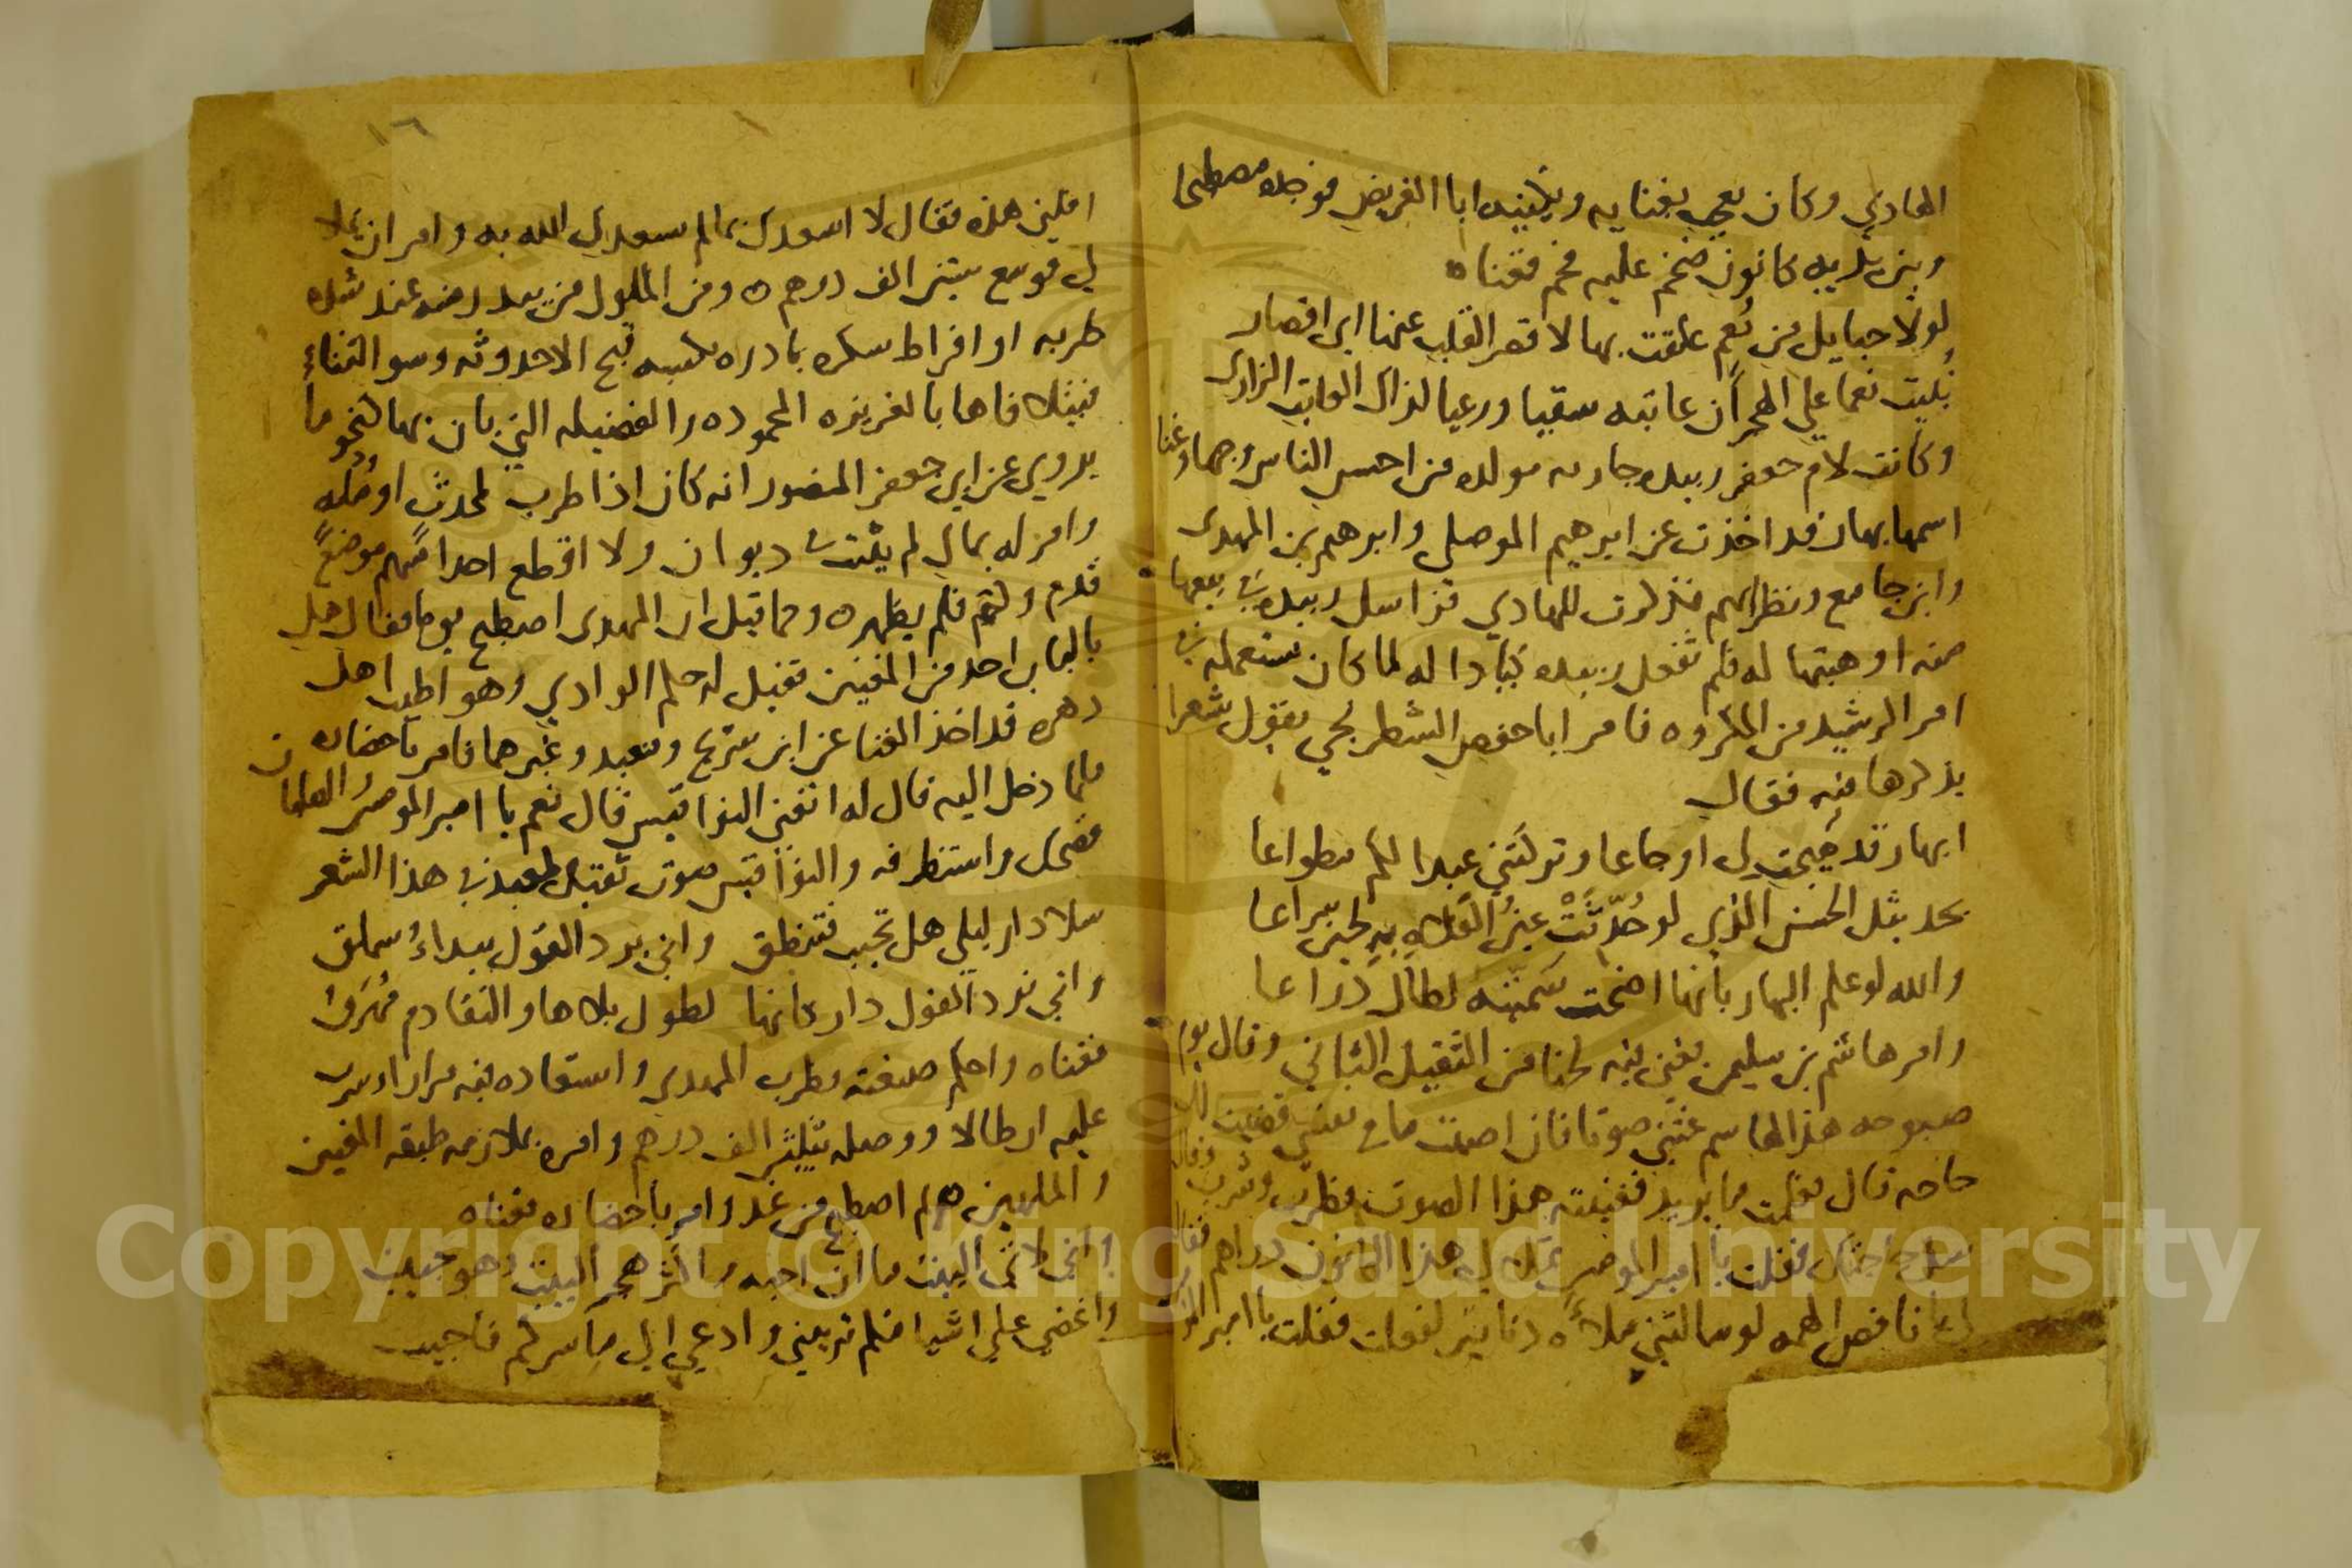 الهادي وكان يعجب بغنايه ويكنيه ابا الغريض فوجده مصطبحا
وبين يديه كانون ضخم عليه فحم فغناه
لولا حبايل من نُعم علقت بها لاقصر القلب عنها اي اقصار
نبيت نعما علي الهجران عاتبه سقيا ورعيا لذاك العاتب الزاري
وكانت لام جعفر زبيده جاريه مولده من احسن الناس وجها وغنا
اسمها بهار قد اخذت عن ابرهيم الموصلي وابرهيم بن المهدي
وابن جامع ونظرايهم فذكرت للهادي فراسل زبيده في بيعها
منه او هبتها له فلم تفعل زبيده كيادا له لما كان يستعمله في
امر الرشيد من المكروه فامر ابا حفص الشطرنجي يقول شعرا
يذكرها فيه فقال
ابهار قد هيجت لي اوجاعا وتركتني عبدا لكم مطواعا
بحديثك الحسن الذي لو حُدّثَتْ عنه الفلاه به لجين سراعا
والله لو علم البهار بانها اضحت سميته لطال ذراعا
وامر هاشم بن سليمن يغني فيه لحنا من الثقيل الثاني وقال يوم
صبوحه هذا لهاشم غنني صوتا فان اصبت ما في نفسي قضيت لك
حاجه قال فعلمت ما يريد فغنيته هذا الصوت فطرب وشرب وقال
سل حاجتك فقلت يا امير المومنين تملا لي هذا الكانون دراهم فقال
لي يا ناقص الهمه لو سالتني ملأه دنانير لفعلت فقلت يا امير المومنين
١٦
اقلني هذه فقال لا اسعدك بما لم يسعدك الله به وامر ان يملا
لي فوسع ستين الف درهم ومن الملوك من يبدر منه عند شده
طربه او افراط سكره بادره تكسبه قبح الاحدوثه وسو الثناء
فيتلافاها بالغريزه المحموده والفضيله التي بان بها كنحو ما
يروي عن ابي جعفر المنصور انه كان اذا طرب لمحدث او مُلَه
وامر له بمال لم يثبت في ديوان ولا اقطع احدا منهم موضع
قدم ولكنه فلم يظهره ومما قيل ان المهدي اصطبح يوما فقال هل
بالباب احد من المغنين فقيل له حكم الوادي وهو اطيب اهل
دهره قد اخذ الغنا عن ابن سريج ومعبد وغيرهما فامر باحضاره
فلما دخل اليه قال له اتغني النواقيس قال نعم يا امير المومنين والصلبان
فضحك واستظرفه والنواقيس صوت ثقيل لمعبد في هذا الشعر
سلا دار ليلي هل تجيب فتنطق واني يرد القول بيداءُ سملق
واني ترد القول دار كانها لطول بلاها والتقادم مُهرَقُ
فغناه واحكم صنعته فطرب المهدي واستعاده فيه مرارا وشرب
عليه ارطالا ووصله بثلثين الف درهم وامره بملازمه طبقه المغنين
والملهين ثم اصطبح من غد وامر باحضاره فغناه
واني لاتي البيت ما ان احبه واكثر هجر البيت وهو حبيب
واغضي علي اشيا منكم تريبني وادعي الي ما سركم فاجيب
Copyright © King Saud University